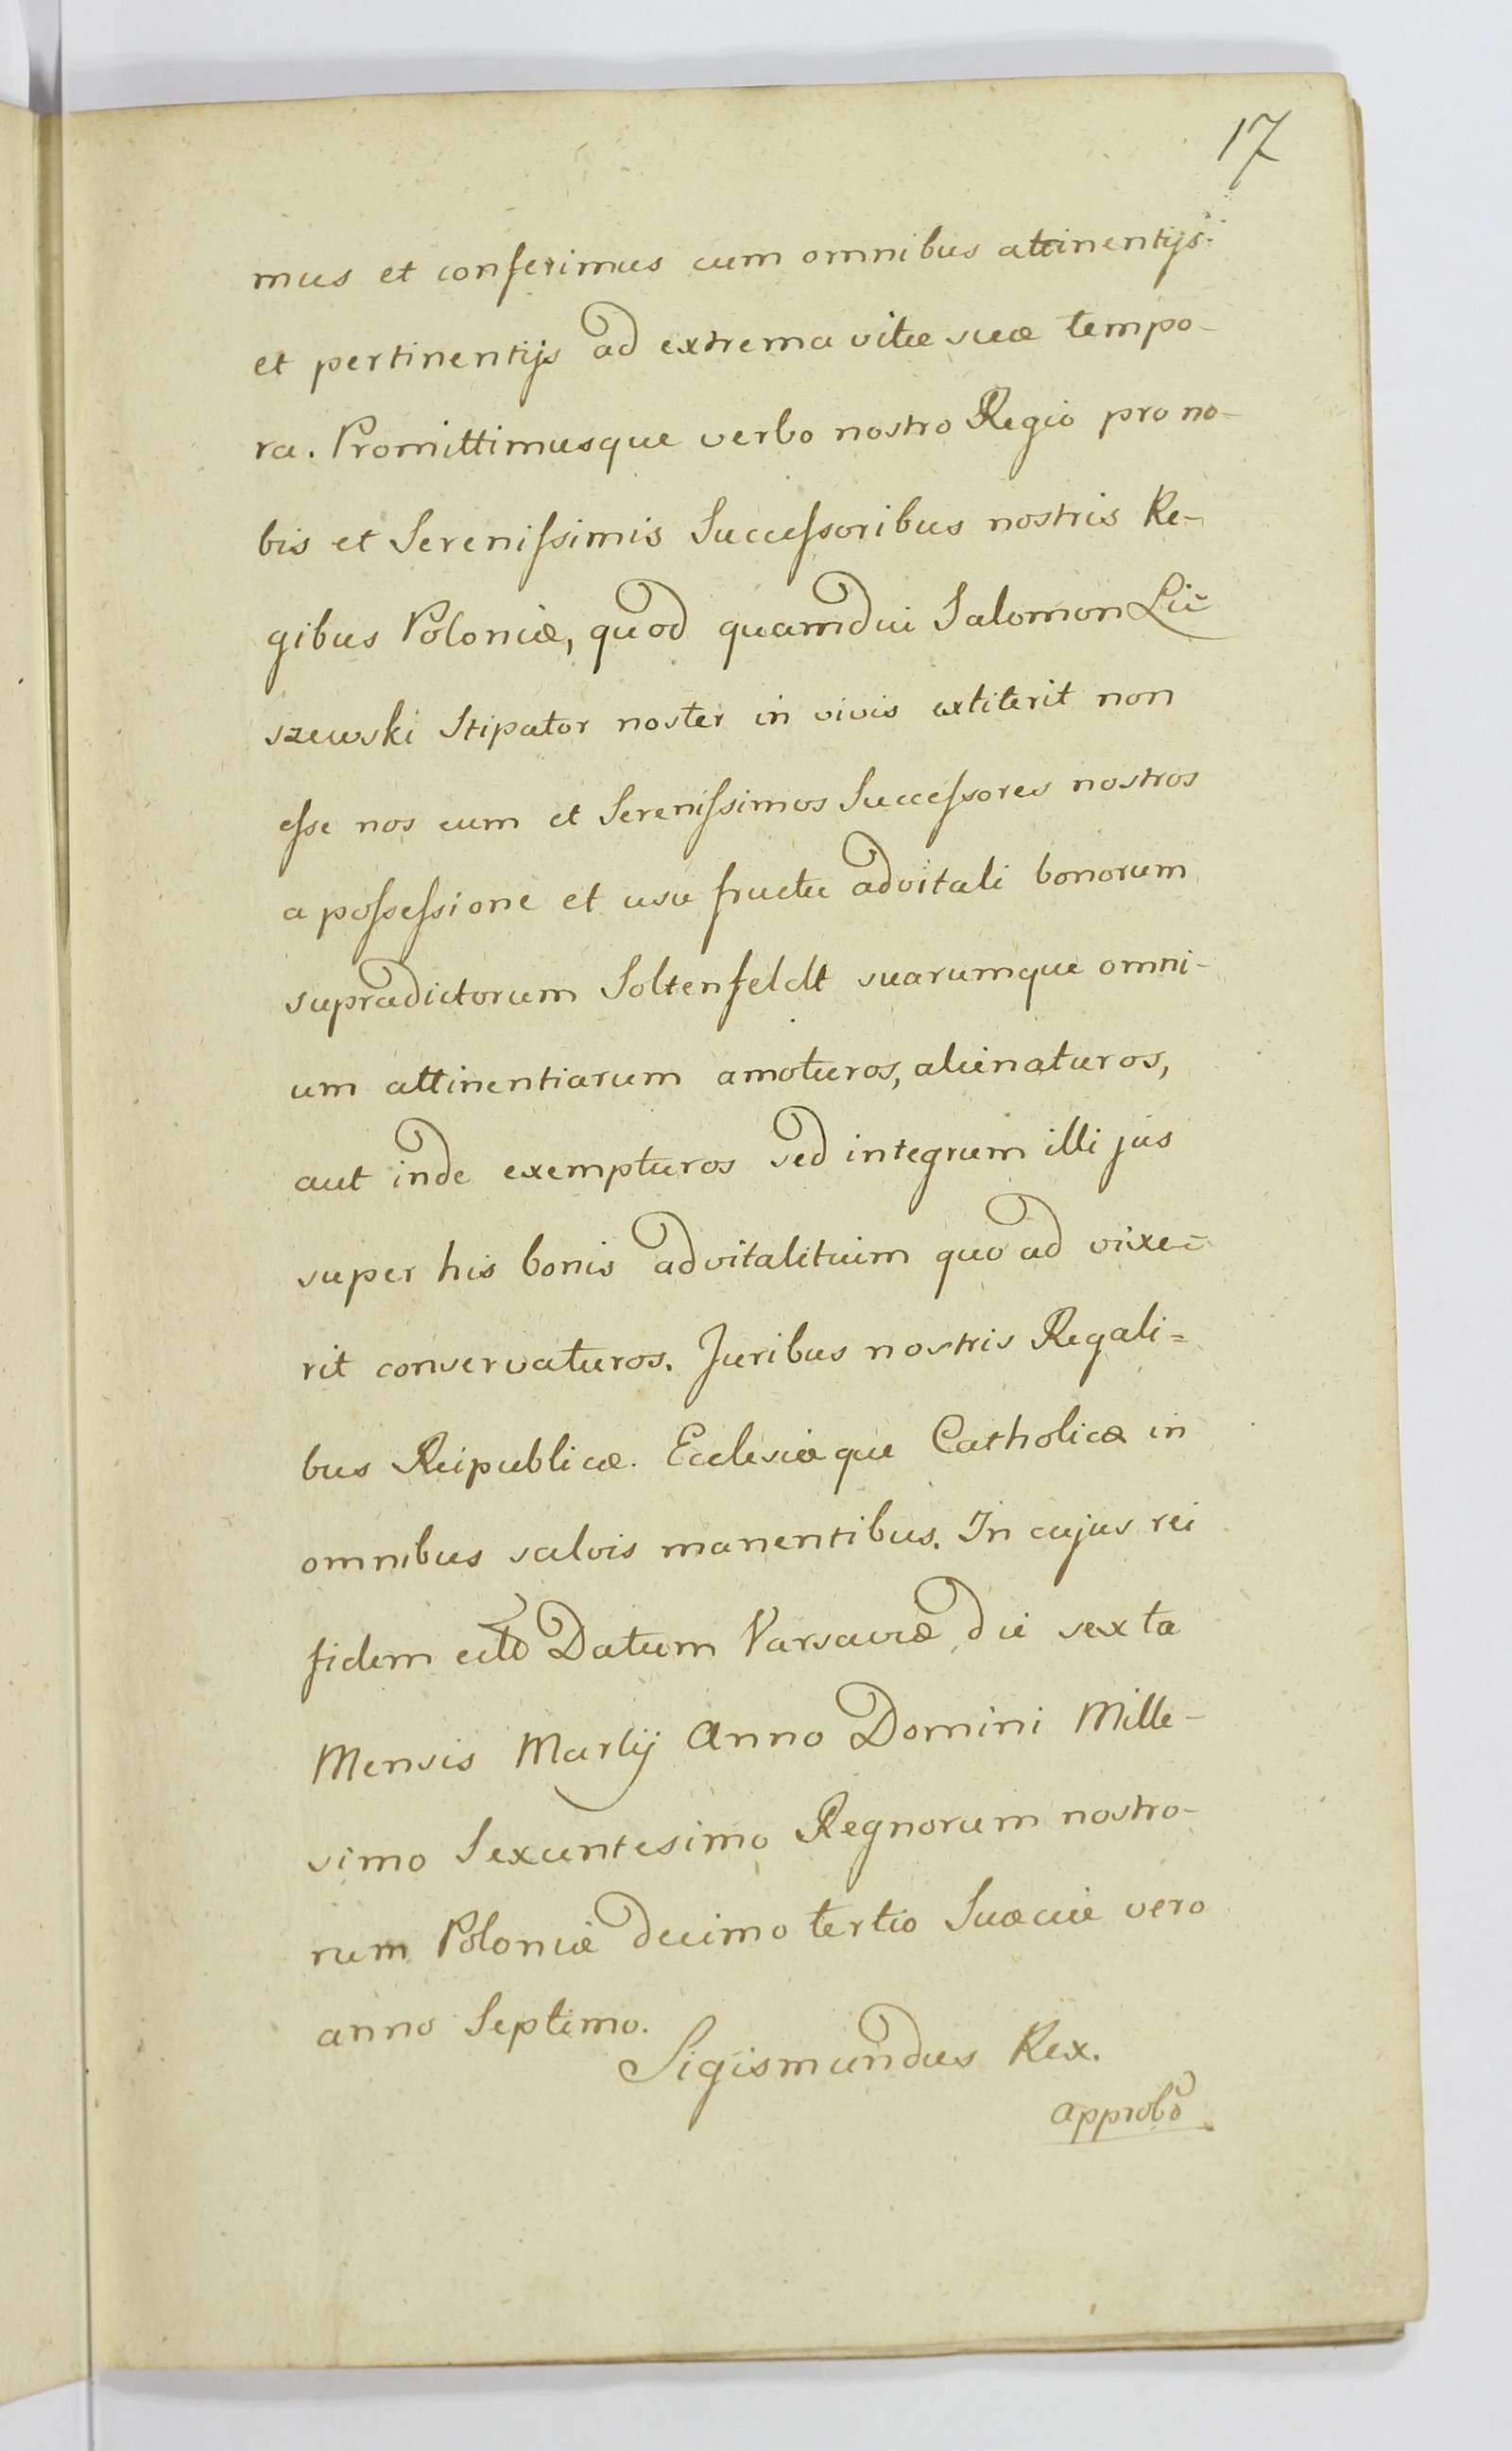 17
mus et conferimus cum omnibus attinentijs
et pertinentijs ad extrema vitæ suæ tempo-
ra. Promittimusque verbo nostro Regio pro no-
bis et Sereniſsimis Succeſsoribus nostris Re-
gibus Poloniæ, quod quamdiu Salomon Li-
szewski Stipator noster in vivis extiterit non
eſse nos eum et Sereniſsimos Succeſsores nostros
a poſseſsione et usu fructu advitali bonorum
supradictorum Soltenfeldt suarumque omni-
um attinentiarum amoturos, alienaturos,
aut inde exempturos sed integrum illi jus
super his bonis advitalitium quo ad vixe-
rit conservaturos. Juribus nostris Regali=
bus Reipublicæ. Ecclesiæque Catholicæ in
omnibus salvis manentibus. In cujus rei
fidem Datum Varsaviæ die sexta
Mensis Martij Anno Domini Mille-
simo Sexcentesimo Regnorum nostro-
rum Poloniæ decimo tertio Suæciæ vero
anno Septimo.
Sigismundus Rex.
approbo